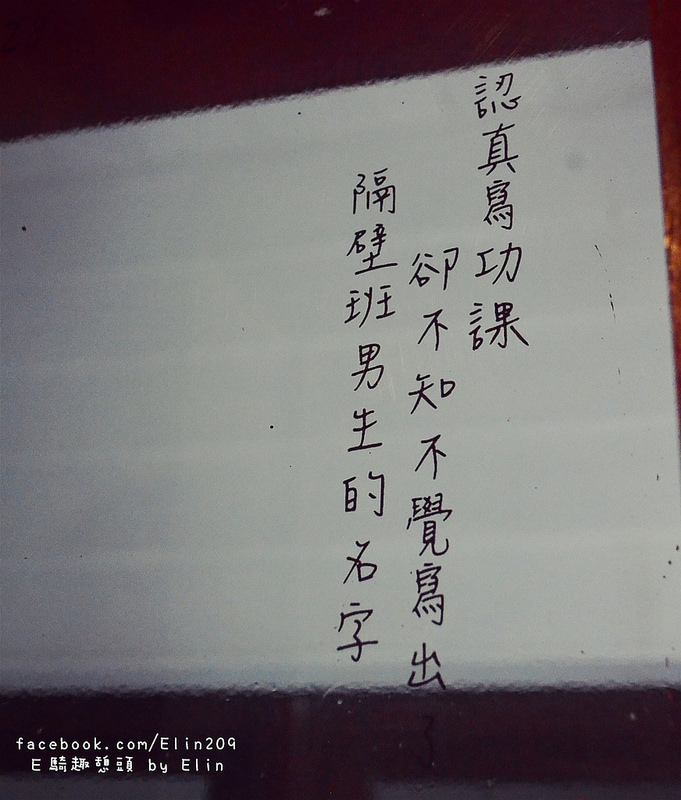 認真寫功課
卻不知不覺寫出
隔壁班男生的名字
facebook.com/Elin209
E騎趣憩頭 by Elin